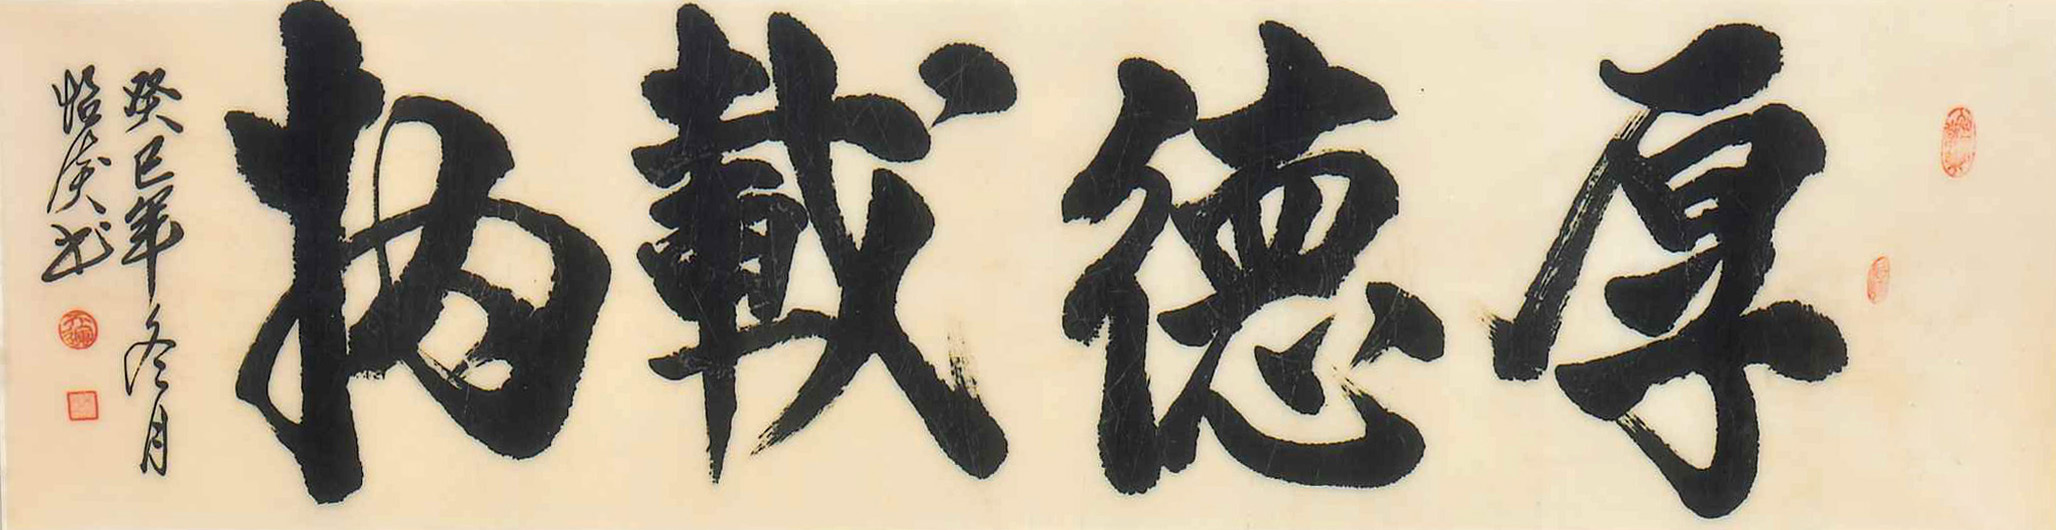 厚德載物
癸巳年冬月